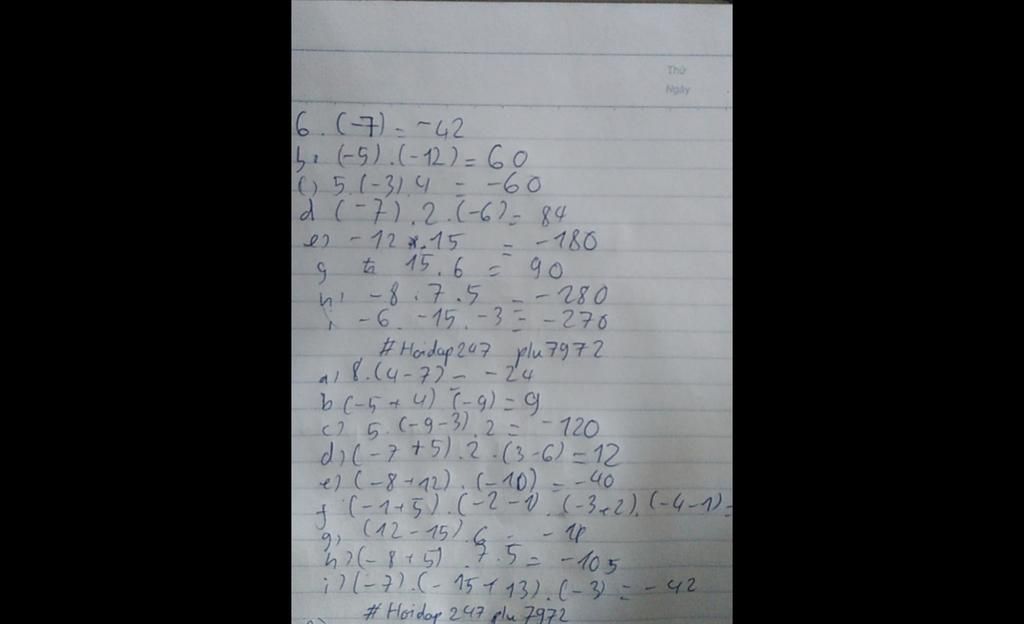 Thứ
Ngày
6 . (-7) = -42
b, (-5) . (-12) = 60
c) 5 . (-3) . 4 = -60
d (-7) . 2 . (-6) = 84
e) -12 . 15 = -180
g 15 . 6 = 90
h) -8 . 7 . 5 = -280
i -6 . -15 . -3 = -270
#Hoidap247 plu7972
a) 8 . (4-7) = -24
b (-5+4) . (-9) = 9
c) 5 . (-9-3) . 2 = -120
d) (-7+5) . 2 . (3-6) = 12
e) (-8+12) . (-10) = -40
f (-1+5) . (-2-1) . (-3+2) . (-4-1) =
g) (12-15) . 6 =
h) (-8+5) . 7 . 5 = -105
i) (-7) . (-15+13) . (-3) = -42
#Hoidap247 plu7972